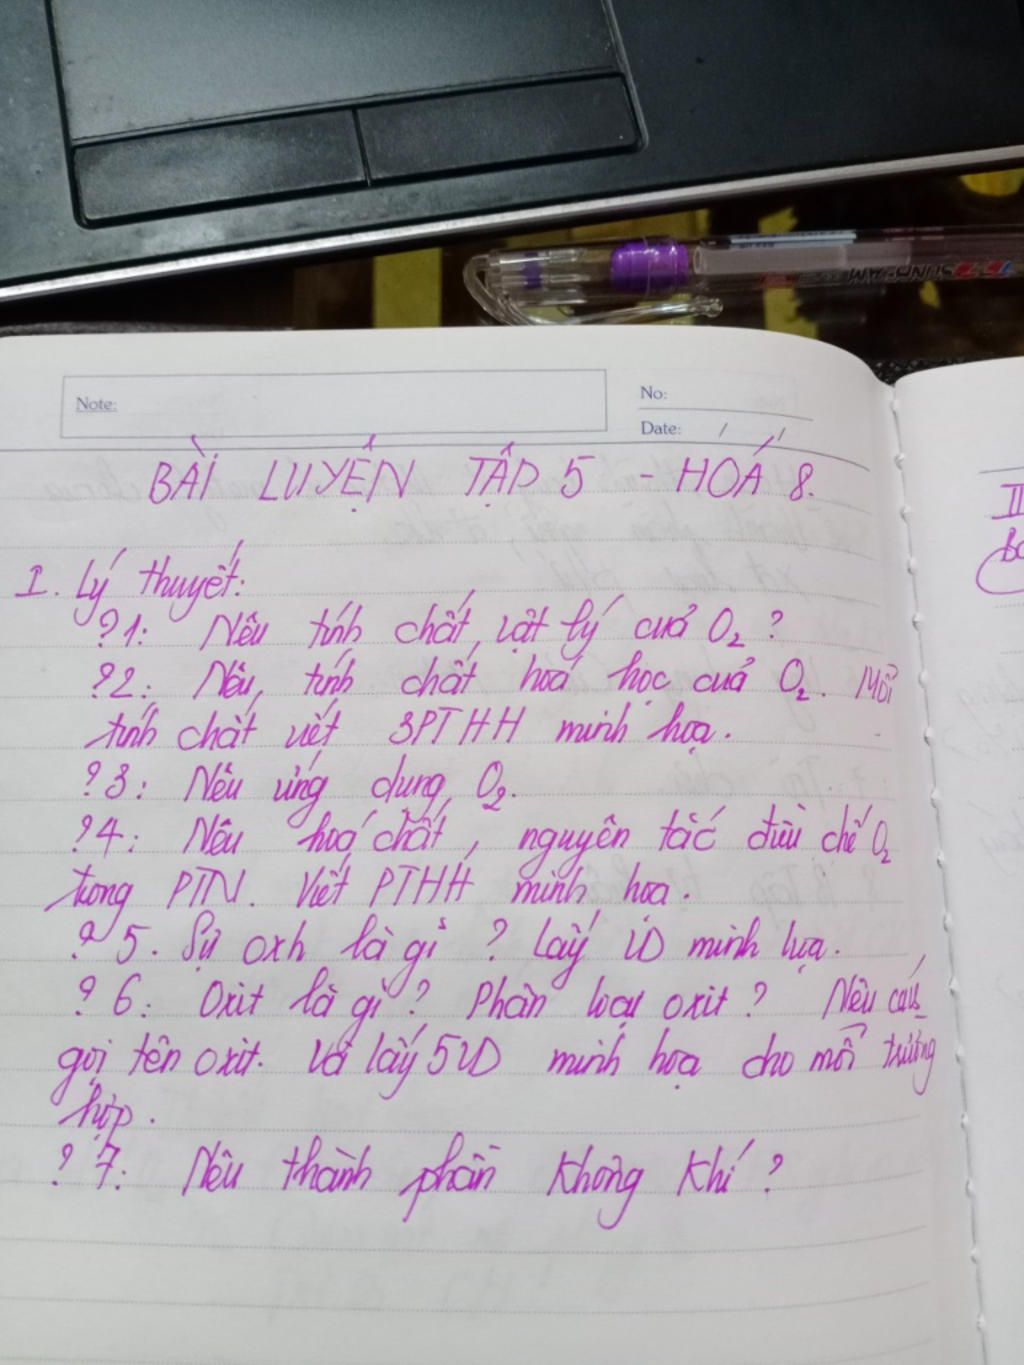 SUNBEAM
Note:
No:
Date: / /
BÀI LUYỆN TẬP 5 - HOÁ 8.
I. Lý thuyết:
?1: Nêu tính chất vật lý của O₂ ?
?2: Nêu tính chất hoá học của O₂. Mỗi
tính chất viết 3PTHH minh họa.
?3: Nêu ứng dụng O₂.
?4: Nêu hoá chất, nguyên tắc điều chế O₂
trong PTN. Viết PTHH minh họa.
? 5. Sự oxh là gì ? Lấy VD minh họa.
? 6: Oxit là gì ? Phân loại oxit ? Nêu cách
gọi tên oxit. Và lấy 5VD minh họa cho mỗi trường
hợp.
? 7: Nêu thành phần không khí ?
II